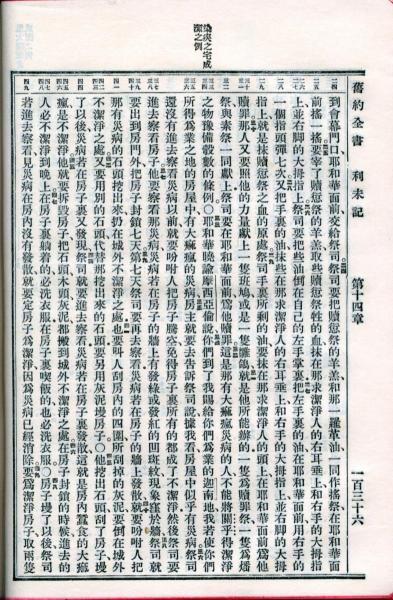 染災之宅成
潔之例
舊約全書 利未記 第十四章 一百三十六
到會幕門口耶和華面前交給祭司祭司要把贖愆祭的羊羔和那一羅革油一同作搖祭在耶和華面
前搖一搖要宰了贖愆祭的羊羔取些贖愆祭牲的血抹在那求潔淨人的右耳垂上和右手的大拇指
上並右脚的大拇指上祭司要把些油倒在自己的左手掌裏把左手裏的油在耶和華面前用右手的
一個指頭彈七次又把手裏的油抹些在那求潔淨人的右耳垂上和右手的大拇指上並右脚的大拇
指上就是抹贖愆祭之血的原處祭司手裏所剩的油要抹在那求潔淨人的頭上在耶和華面前爲他
贖罪那人又要照他的力量獻上一隻班鳩或是一隻雛鴿就是他所能辦的一隻爲贖罪祭一隻爲燔
祭與素祭一同獻上祭司要在耶和華面前爲他贖罪這是那有大痲瘋災病的人不能將關乎得潔淨
之物豫備彀數的條例○耶和華曉諭摩西亞倫說你們到了我賜給你們爲業的迦南地我若使你們
所得爲業之地的房屋中有大痲瘋的災病房主就要去告訴祭司說據我看房屋中似乎有災病祭司
還沒有進去察看災病以前就要吩咐人把房子騰空免得房子裏所有的都成了不潔淨然後祭司要
進去察看房子他要察看那災病災病若在房子的牆上有發綠或發紅的凹斑紋現象窪於牆祭司就
要出到房門外把房子封鎖七天第七天祭司要再去察看災病若在房子的牆上發散就要吩咐人把
那有災病的石頭挖出來扔在城外不潔淨之處也要叫人刮房內的四圍所刮掉的灰泥要倒在城外
不潔淨之處又要用別的石頭代替那挖出來的石頭要另用灰泥墁房子○他挖出石頭刮了房子墁
了以後災病若在房子裏又發現祭司就要進去察看災病若在房子裏發散這就是房內蠶食的大痲
瘋是不潔淨他就要拆毀房子把石頭木頭灰泥都搬到城外不潔淨之處在房子封鎖的時候進去的
人必不潔淨到晚上在房子裏躺着的必洗衣服在房子裏喫飯的也必洗衣服○房子墁了以後祭司
若進去察看見災病在房內沒有發散就要定房子爲潔淨因爲災病已經消除要爲潔淨房子取兩隻